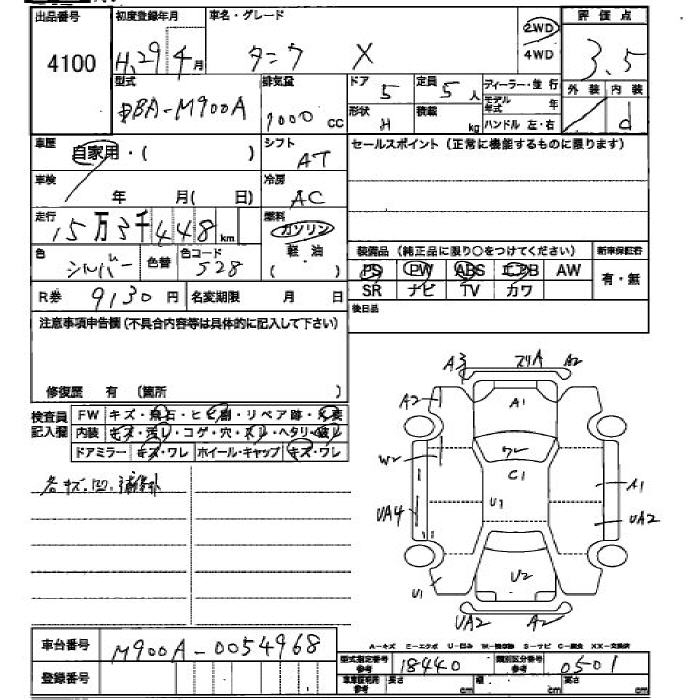 出品番号 初度登録年月 車名・グレード 評価点
4100 H.29 4月 タンク X 2WD 4WD 3.5
型式 排気量 ドア 5 定員 5人 ディーラー・並行 外装 内装
DBA-M900A 1000 cc 形状 H 積載 kg モデル年式 年 d
ハンドル 左・右
車歴 自家用・( ) シフト AT セールスポイント(正常に機能するものに限ります)
車検 年 月( 日) 冷房 AC
走行 15万3千448km 燃料 ガソリン
軽油
( )
色 シルバー 色替 色コード S28 装備品(純正品に限り○をつけてください) 新車保証書
PS PW ABS エアB AW 有・無
R券 9130円 名変期限 月 日 SR ナビ TV カワ
注意事項申告欄(不具合内容等は具体的に記入して下さい) 後日品
修復歴 有 (箇所 )
検査員記入欄 FW キズ・飛石・ヒビ割・リペア跡・要交換
内装 キズ・汚レ・コゲ・穴・スレ・ヘタリ・破レ
ドアミラー キズ・ワレ ホイール・キャップ キズ・ワレ
各キズ、凹、補修跡
A3 スリA A2
A2 A1
W2 ワレ
C1 A1
UA4 U1 UA2
U1 U2
UA2 A2
A-キズ E-エクボ U-凹み W-補修跡 S-サビ C-腐食 XX-交換済
車台番号 M900A-0054968
型式指定番号 参考 18440 類別区分番号 参考 0501
登録番号 車庫証明用 参考 長さ cm cm cm